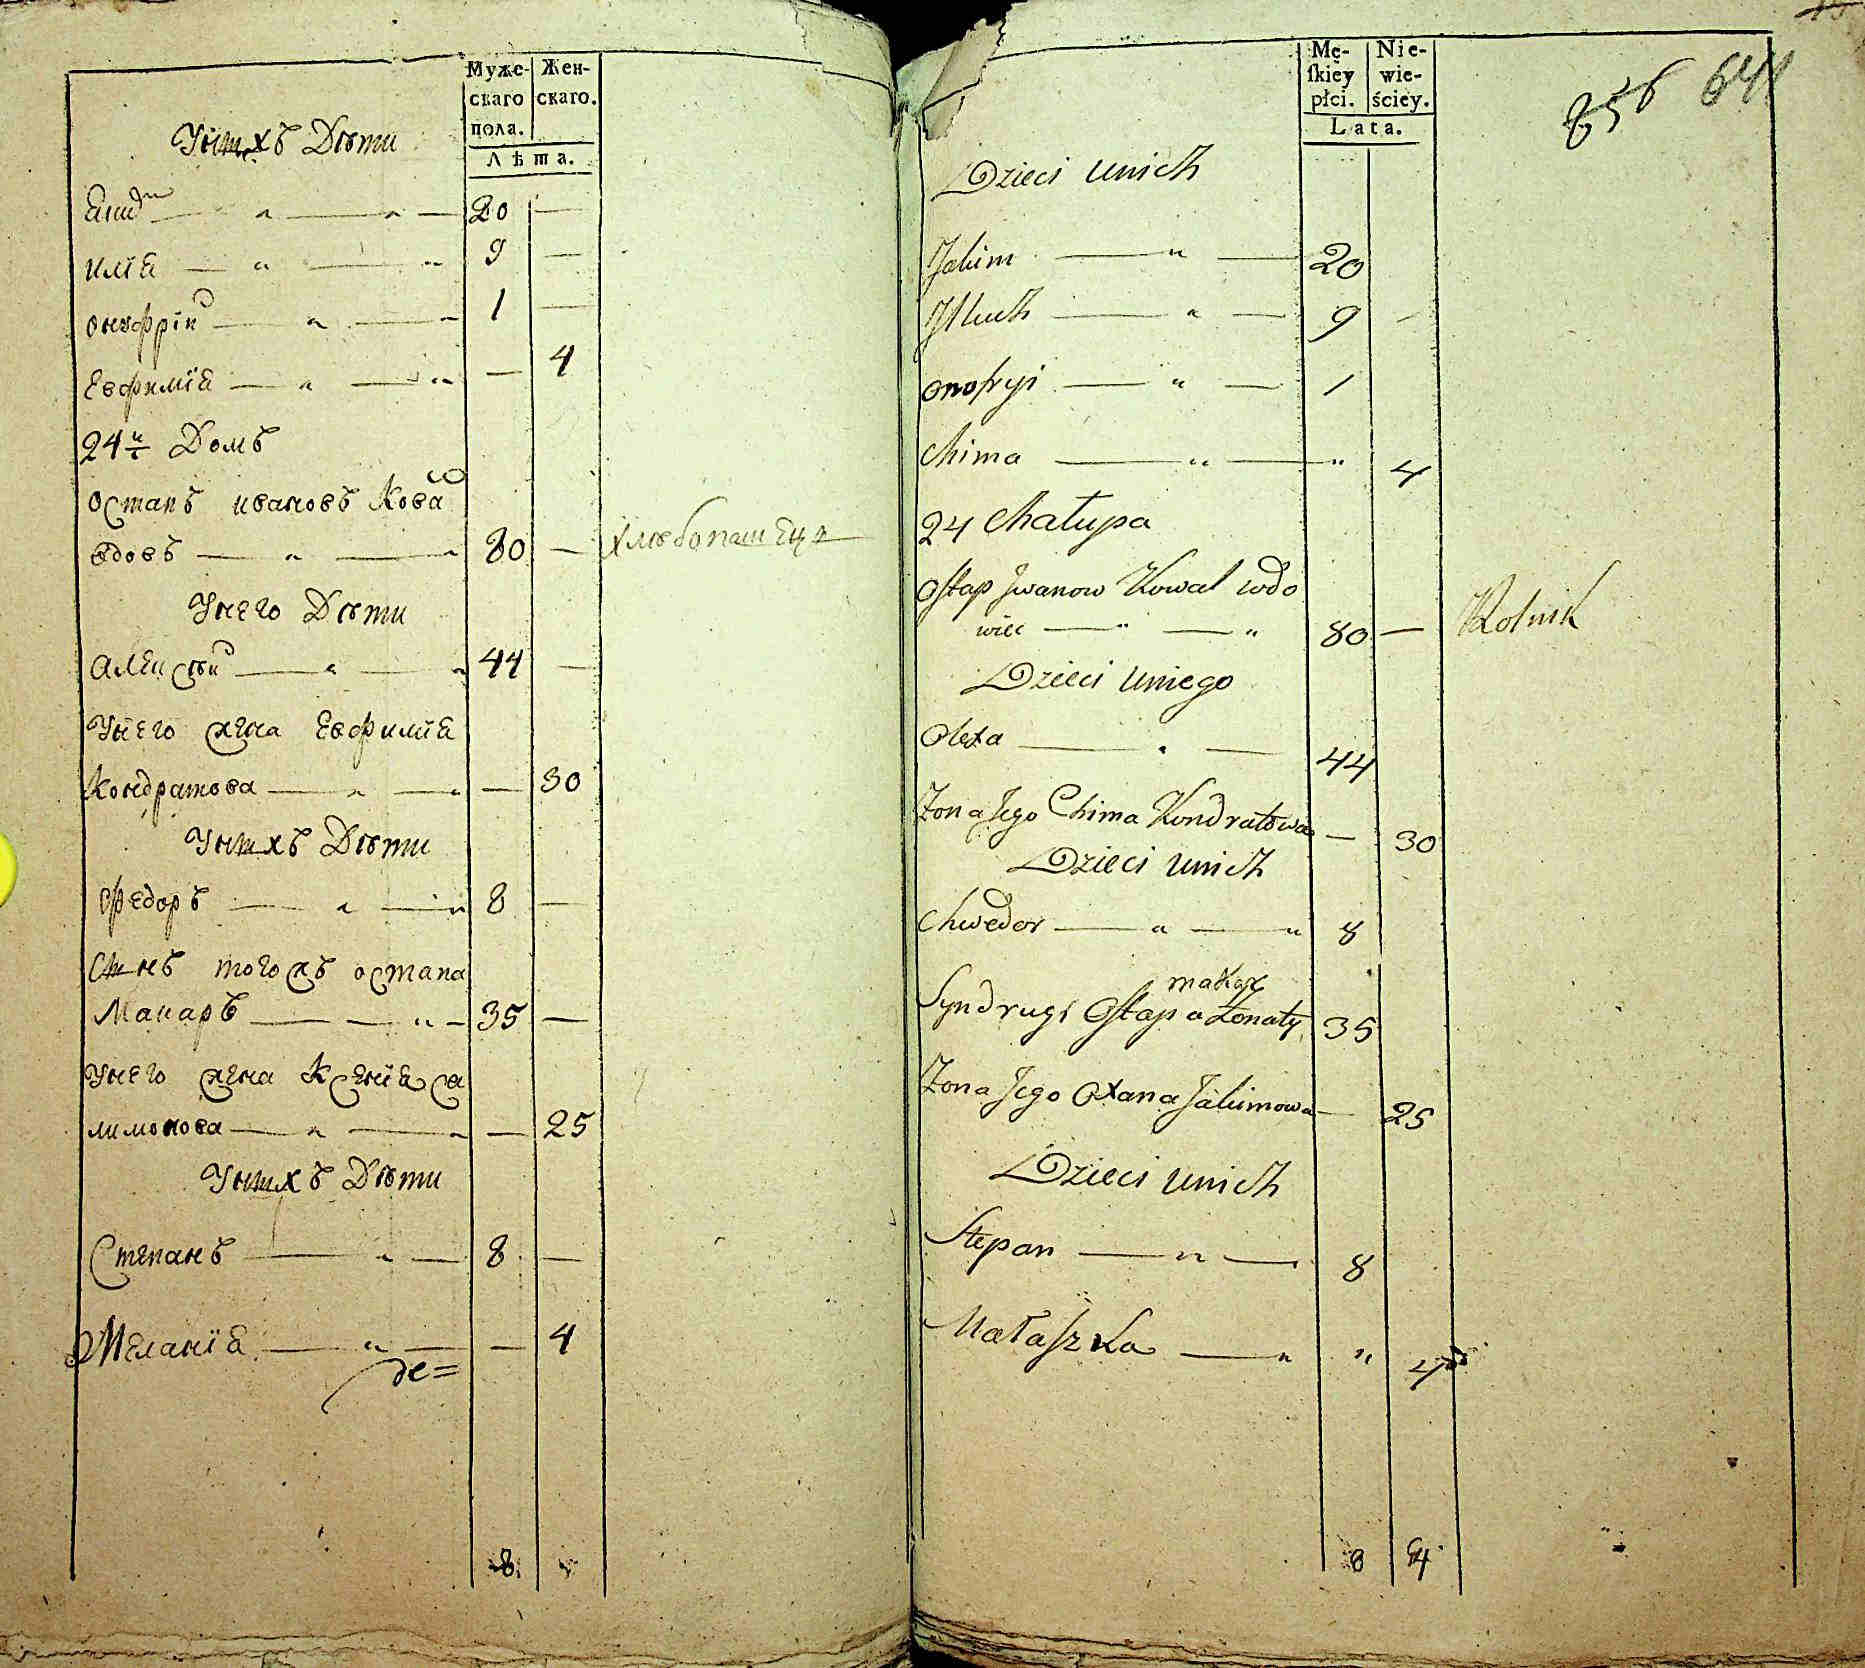 Муже-
скаго
пола.
Жен-
скаго.
Лѣта.
Унихъ Дѣти
20 —
илїа — „ — „ 9 —
онуфрїи — „ — „ 1 —
Евфимїа — „ — „ — 4
24й Домъ
Остапъ ивановъ Ковал
вдовъ — „ — „ 80 — хлѣбопашецъ
Унего Дѣти
Алексѣи — „ — „ 44 —
Унего жена Евфимїа
Кондратова — „ — „ — 30
Унихъ Дѣти
Федоръ — „ — „ 8 —
Сынъ тогожъ остапа
Макаръ — — „ — 35 —
Унего жена Ксенїа Са
лимонова — „ — „ — 25
Унихъ Дѣти
Степанъ — „ — 8 —
Меланїа — „ — — 4
8
Mę-
ſkiey
płci.
Nie-
wie-
ściey.
Lata.
856 641
Dzieci unich
Jakim — „ — 20
Jlluch — „ — 9 —
onofryi — „ — 1
Chima — „ — „ 4
24 Chałupa
Ostap Jwanow Kowal wdo
wiec — „ — „ 80 — Rolnik
Dzieci uniego
Olexa — „ — 44
Żona Jego Chima Kondratowa — 30
Dzieci unich
Chwedor — „ — „ 8
makar
Syn drugi Ostapa Żonaty 35
Żona Jego Oxana Jakimowa — 25
Dzieci unich
Stepan — „ — 8
Małaszka — „ „ 4
8 4